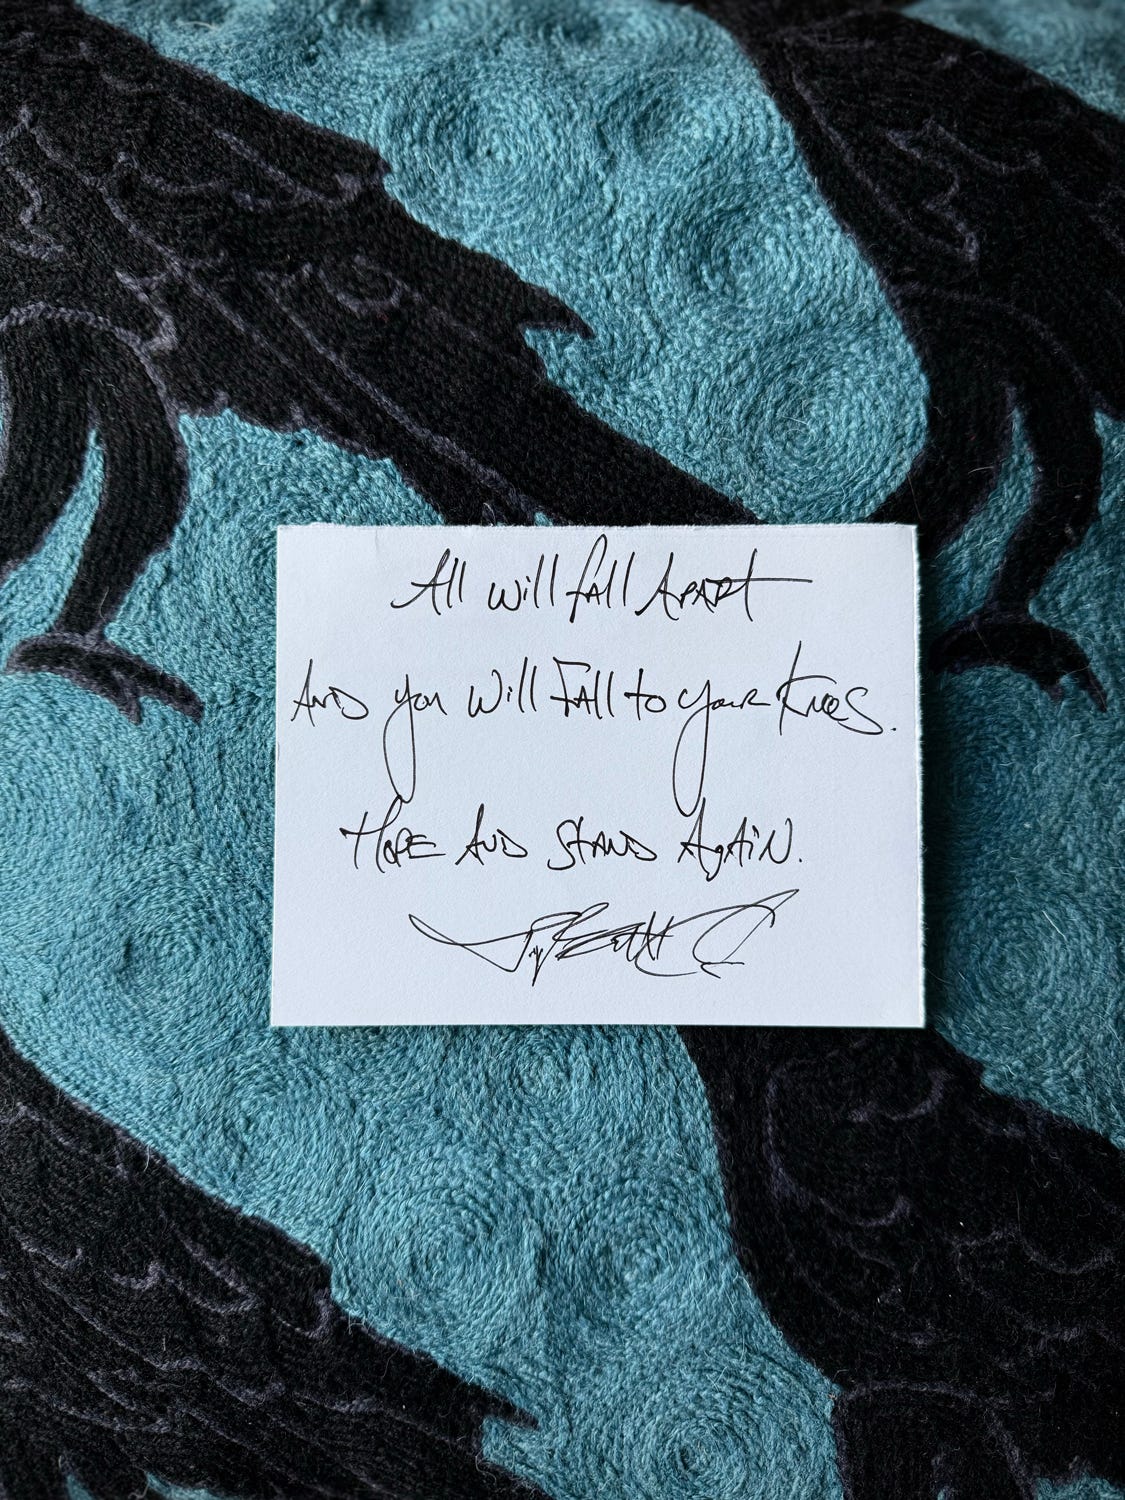 All will fall Apart
And you will Fall to your Knees.
Hope And Stand Again.